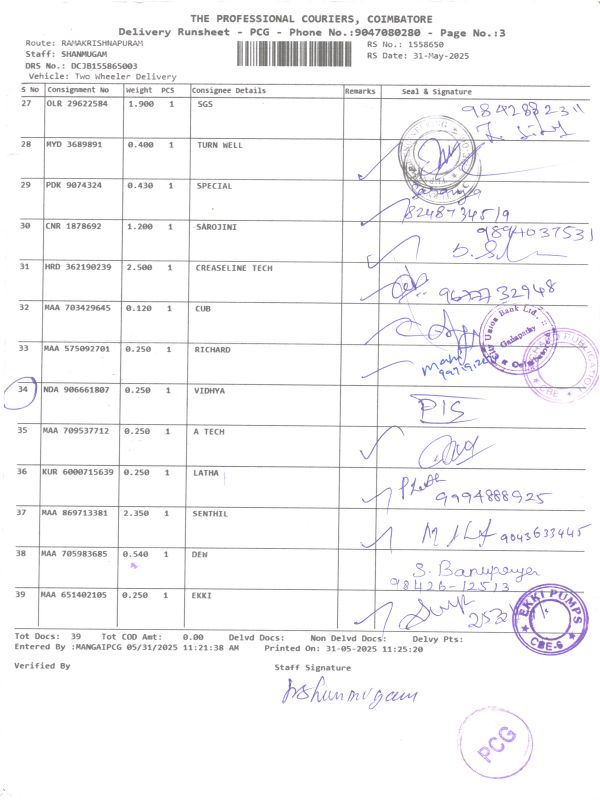 THE PROFESSIONAL COURIERS, COIMBATORE
Delivery Runsheet - PCG - Phone No.:9047080280 - Page No.:3
Route: RAMAKRISHNAPURAM RS No.: 1558650
Staff: SHANMUGAM RS Date: 31-May-2025
DRS No.: DCJB155865003
Vehicle: Two Wheeler Delivery
S No Consignment No Weight PCS Consignee Details Remarks Seal & Signature
27 OLR 29622584 1.900 1 SGS
28 MYD 3689891 0.400 1 TURN WELL
29 PDK 9074324 0.430 1 SPECIAL
8248734519
30 CNR 1878692 1.200 1 SAROJINI 9894037531
31 HRD 362190239 2.500 1 CREASELINE TECH
32 MAA 703429645 0.120 1 CUB
Union Bank Ltd.
33 MAA 575092701 0.250 1 RICHARD
34 NDA 906661807 0.250 1 VIDHYA PIS
35 MAA 709537712 0.250 1 A TECH
36 KUR 6000715639 0.250 1 LATHA 9994888925
37 MAA 869713381 2.350 1 SENTHIL 9043633445
38 MAA 705983685 0.540 1 DEW
98426-12513
39 MAA 651402105 0.250 1 EKKI EKKI PUMPS CBE-6
Tot Docs: 39 Tot COD Amt: 0.00 Delvd Docs: Non Delvd Docs: Delvy Pts:
Entered By :MANGAIPCG 05/31/2025 11:21:38 AM Printed On: 31-05-2025 11:25:20
Verified By Staff Signature
PCG